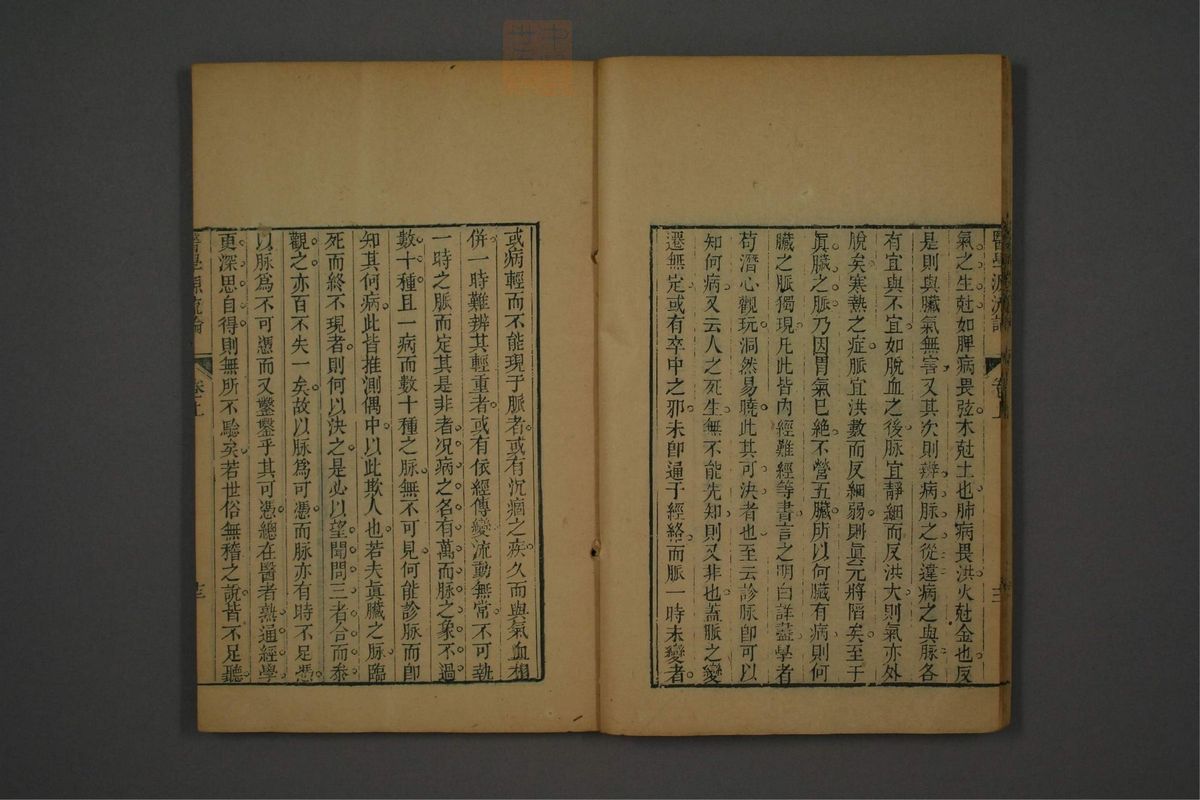 醫學源流論
卷上
氣之生尅如脾病畏弦木尅土也肺病畏洪火尅金也反
是則與臟氣無害又其次則辨病脈之從違病之與脈各
有宜與不宜如脫血之後脈宜靜細而反洪大則氣亦外
脫矣寒熱之症脈宜洪數而反細弱則眞元將陷矣至于
眞臟之脈乃因胃氣已絶不營五臟所以何臟有病則何
臟之脈獨現凡此皆內經難經等書言之明白詳盡學者
苟潛心觀玩洞然易曉此其可決者也至云診脈卽可以
知何病又云人之死生無不能先知則又非也蓋脈之變
遷無定或有卒中之邪未卽通于經絡而脈一時未變者
或病輕而不能現于脈者或有沉痼之疾久而與氣血相
併一時難辨其輕重者或有依經傳變流動無常不可執
一時之脈而定其是非者况病之名有萬而脈之象不過
數十種且一病而數十種之脈無不可見何能診脈而卽
知其何病此皆推測偶中以此欺人也若夫眞臟之脈臨
死而終不現者則何以決之是必以望聞問三者合而叅
觀之亦百不失一矣故以脈爲可憑而脈亦有時不足憑
以脈爲不可憑而又鑿鑿乎其可憑總在醫者熟通經學
更深思自得則無所不驗矣若世俗無稽之說皆不足聽
醫學源流論
卷上